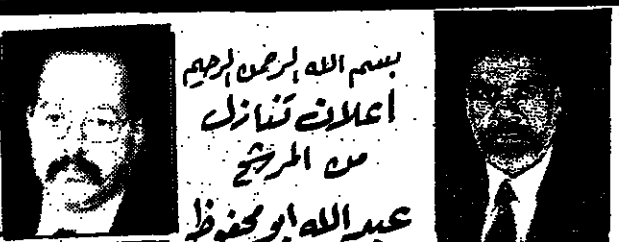 بسم الله الرحمن الرحيم
اعلان تنازل
من المرشح
عبد الله ابو محفوظ